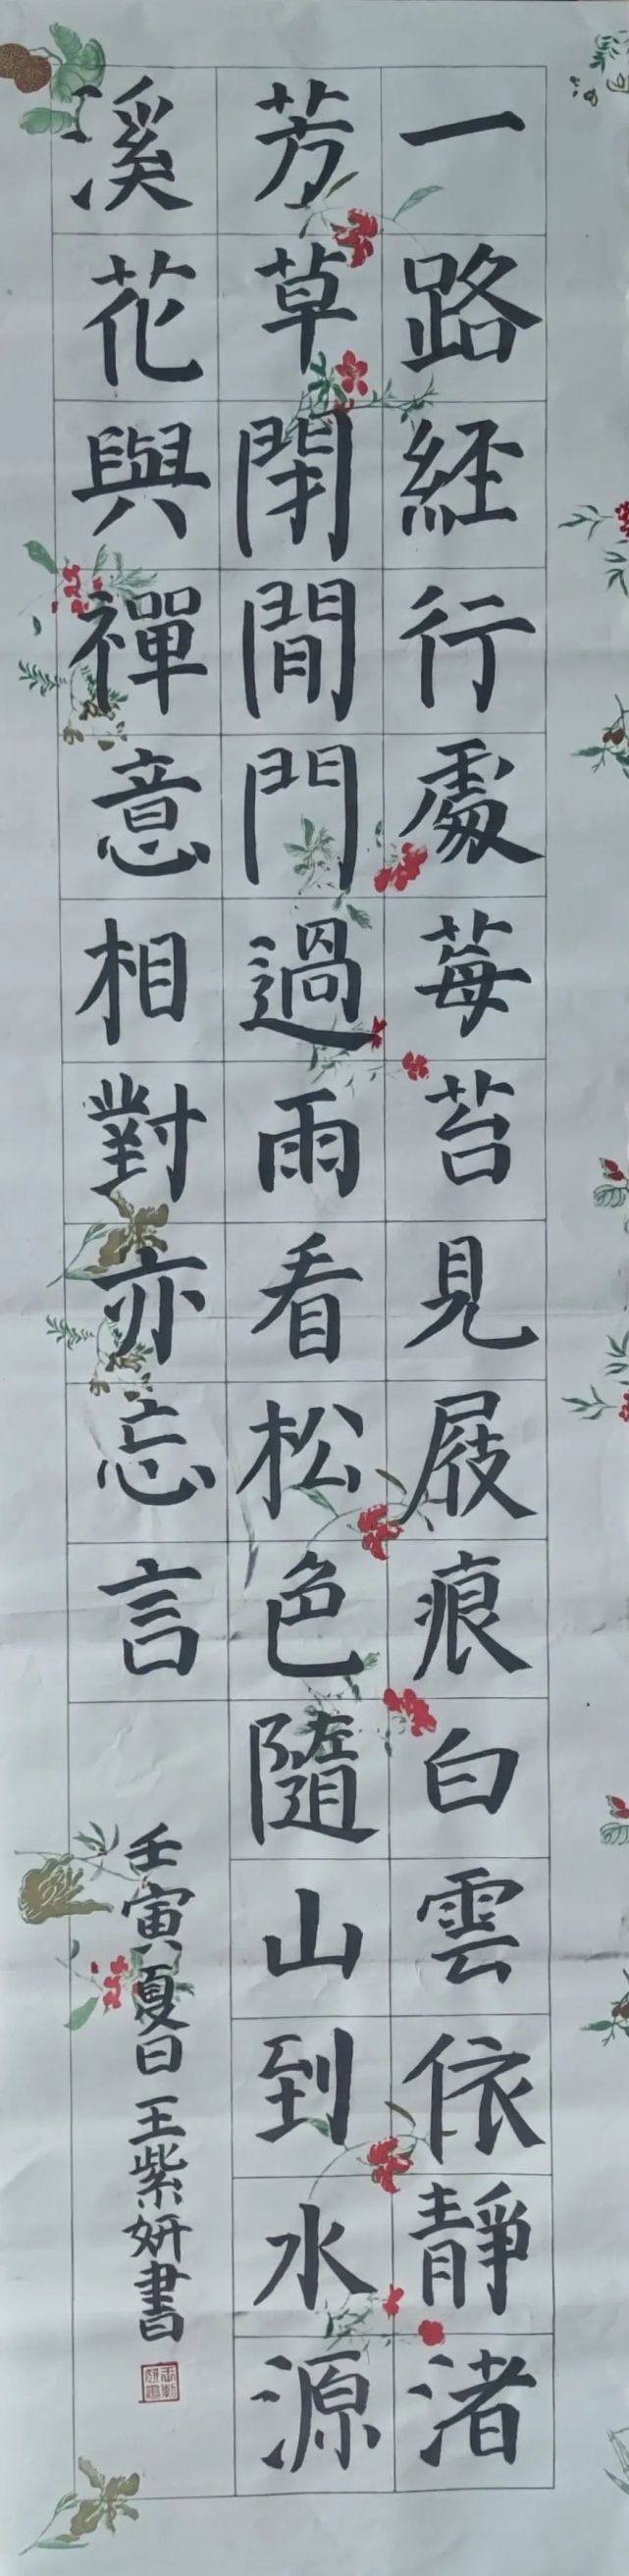 一路經行處莓苔見屐痕白雲依靜渚
芳草閉閒門過雨看松色隨山到水源
溪花與禪意相對亦忘言
壬寅夏日王紫妍書